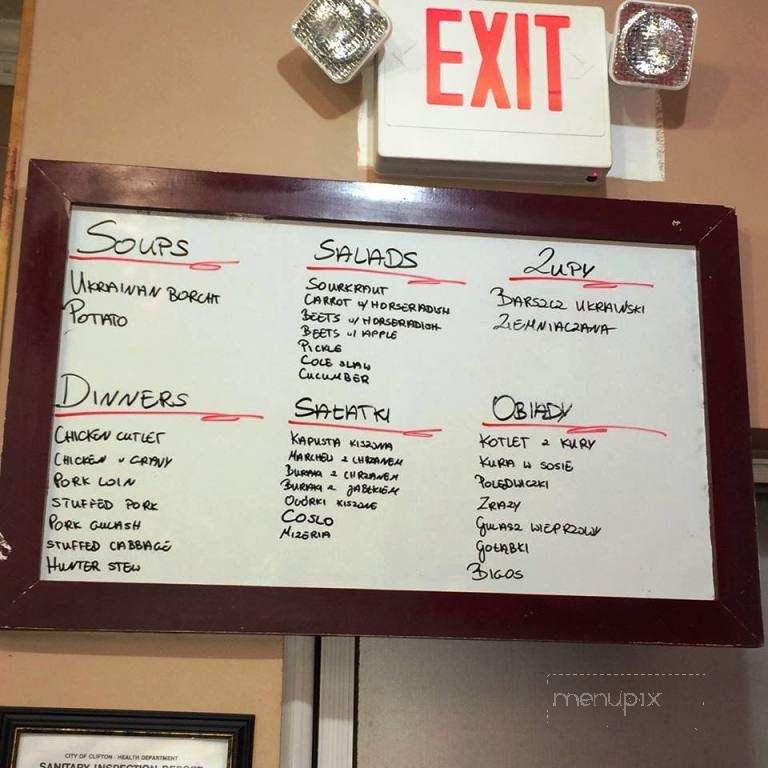 EXIT
SOUPS
UKRAINAN BORCHT
POTATO
SALADS
SOURKRAUT
CARROT W/ HORSERADISH
BEETS W/ HORSERADISH
BEETS W/ APPLE
PICKLE
COLE SLAW
CUCUMBER
ZUPY
BARSZCZ UKRAINSKI
ZIEMNIACZANA
DINNERS
CHICKEN CUTLET
CHICKEN W GRAVY
PORK LOIN
STUFFED PORK
PORK GULASH
STUFFED CABBAGE
HUNTER STEW
SAŁATKI
KAPUSTA KISZONA
MARCHEW Z CHRZANEM
BURAK Z CHRZANEM
BURAK Z JABŁKIEM
OGÓRKI KISZONE
COSLO
MIZERIA
OBIADY
KOTLET Z KURY
KURA W SOSIE
POLĘDWICZKI
ZRAZY
GULASZ WIEPRZOWY
GOŁĄBKI
BIGOS
menupix
CITY OF CLIFTON - HEALTH DEPARTMENT
SANITARY INSPECTION REPORT